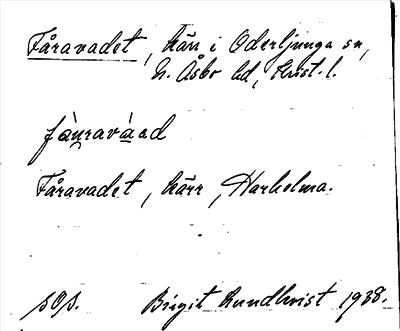 Fåravadet, kärr i Oderljunga sn,
N. Åsbo hd, Krist. l.
fàu̯ravàad
Fåravadet, kärr, Harholma.
sOs. Birgit Lundkvist 1938.